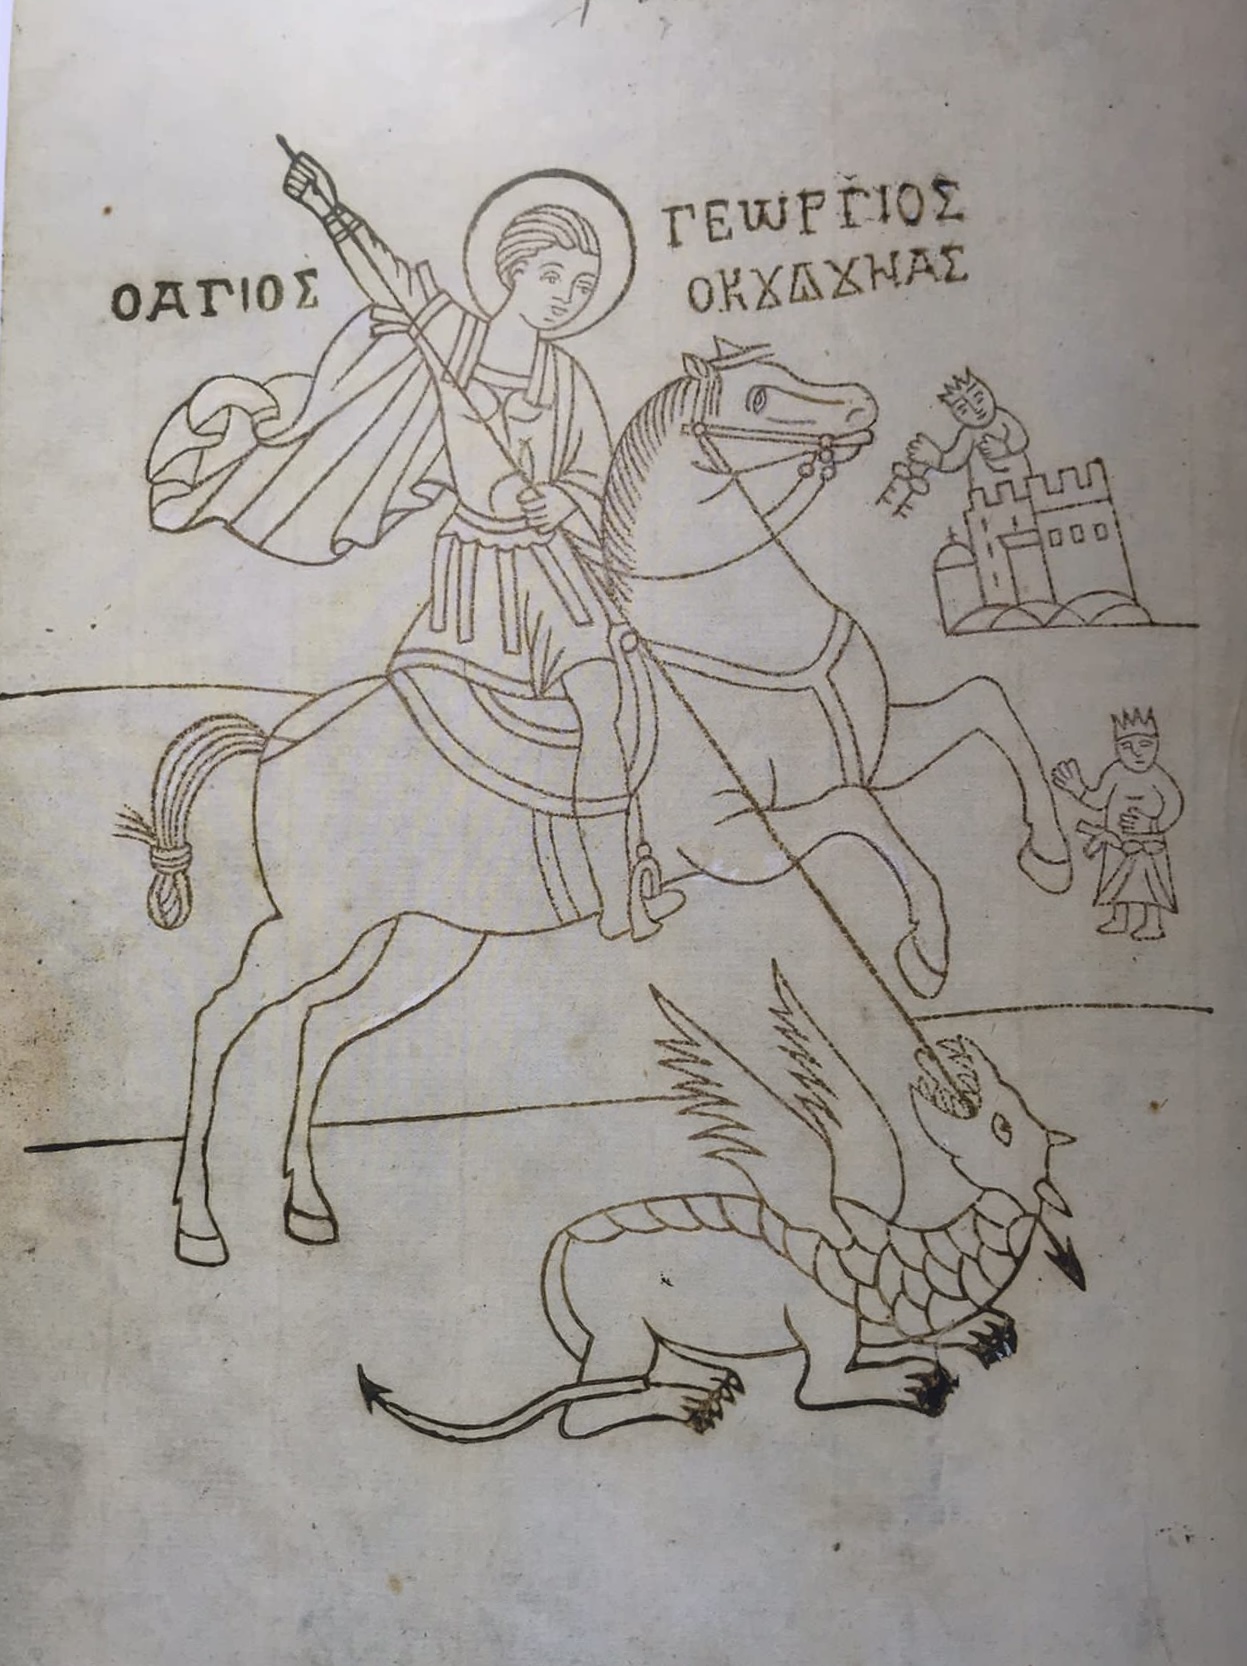 ΟΑΓΙΟΣ
ΓΕΩΡΓΙΟΣ
ΟΚȢΔȢΝΑΣ